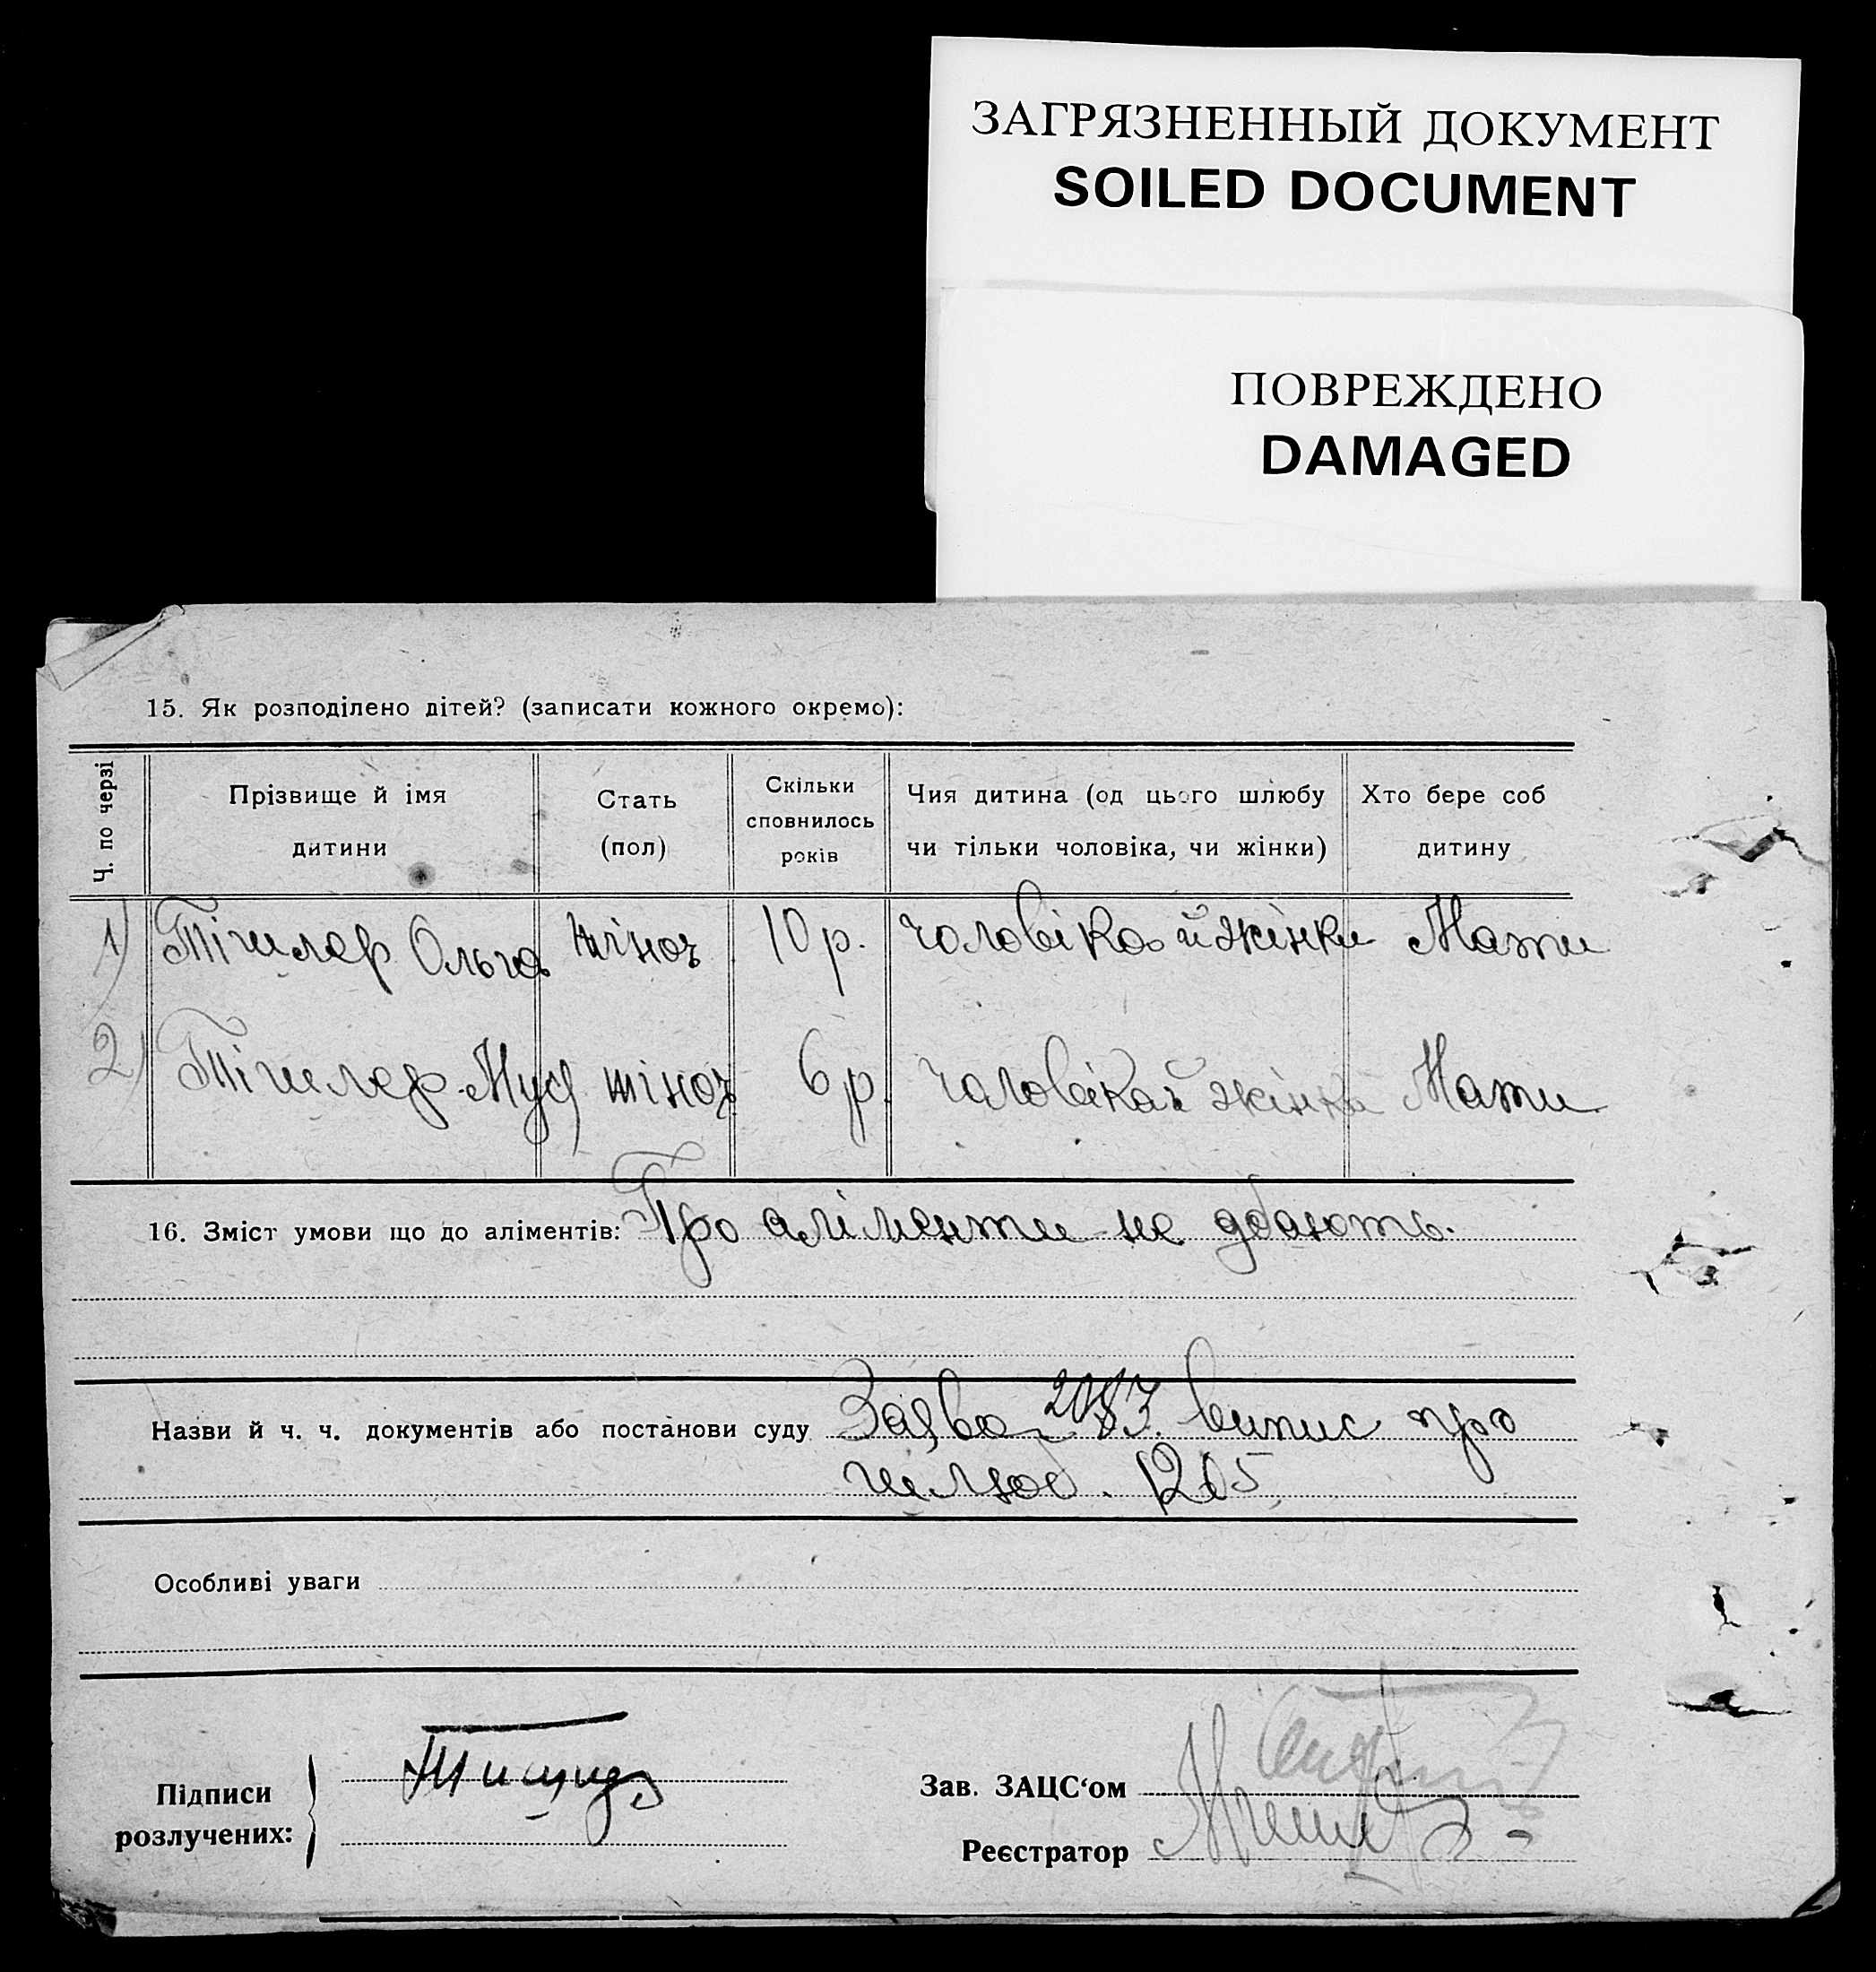 ЗАГРЯЗНЕННЫЙ ДОКУМЕНТ
SOILED DOCUMENT
ПОВРЕЖДЕНО
DAMAGED
15. Як розподілено дітей? (записати кожного окремо):
Ч. по черзі
Прізвище й імя дитини
Стать (пол)
Скільки сповнилось років
Чия дитина (од цього шлюбу чи тільки чоловіка, чи жінки)
Хто бере соб дитину
1) Тішлер Ольга жіноч 10 р. чоловіка й жінки Мати
2) Тішлер Муся жіноч 6 р. чоловіка й жінки Мати
16. Зміст умови що до аліментів: Про аліменти не дбають.
Назви й ч. ч. документів або постанови суду Заява 2083. випис про
шлюб. 1205
Особливі уваги
Підписи
розлучених:
Зав. ЗАЦС‘ом
Реєстратор